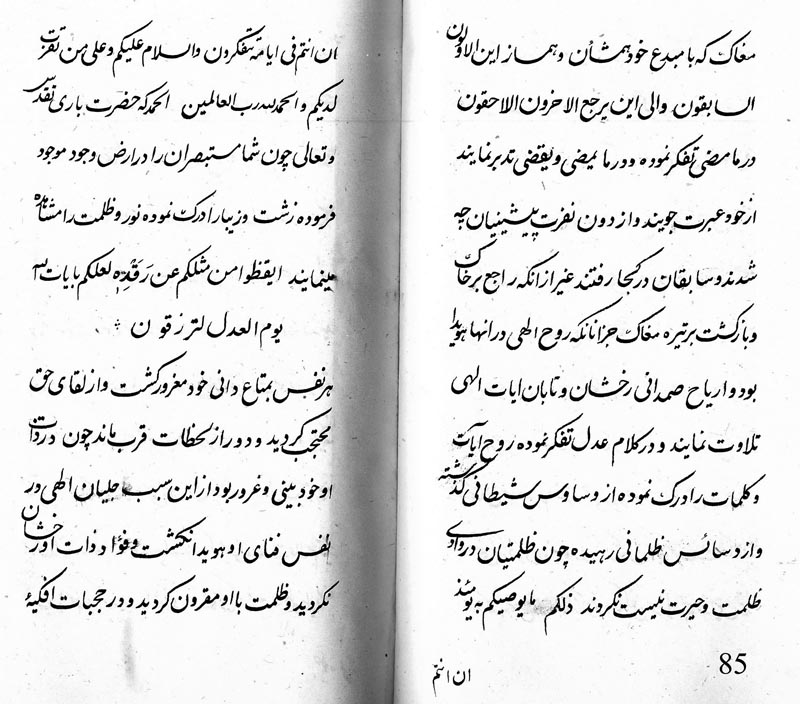 مغاک که با مبدع خود همشأن و همراز این الاولون
السابقون والی این یرجع الاخرون الاحقون
در ما مضی تفکر نموده و در ما یمضی و یقضی تدبر نمایند
از خود عبرت جویند و از دون نفرت پیشینیان چه
شدند و سابقان در کجا رفتند غیر از انکه راجع بر خاک
و بازگشت بر تیره مغاک جز انانکه روح الهی در انها هویدا
بود و اریاح صمدانی رخشان و تابان ایات الهی
تلاوت نمایند و در کلام عدل تفکر نموده روح ایات
و کلمات را درک نموده از وساوس شیطانی گذشته
و از دسائس ظلمانی رهیده چون ظلمتیان در وادی
ظلمت و حیرت نیست نگردند ذلکم ما یوصیکم به یومئذ
ان انتم
85
ان انتم فی ایامه تتفکرون والسلام علیکم وعلی من تقرب
لدیکم والحمد لله رب العالمین الحمد که حضرت باری تقدس
و تعالی چون شما مستبصران را در ارض وجود موجود
فرموده زشت و زیبا را درک نموده نور و ظلمت را مشاهده
مینمایند ایقظوا من مثلکم عن رَقدِهِ لعلکم بایات الله
یوم العدل لترزقون
هر نفس بمتاع دانی خود مغرور گشت و از لقای حق
محتجب گردید و دور از لحظات قرب ماند چون در ذات
او خود بینی و غرور بود از این سبب جلیان الهی در
نفس فنای او هویدا نگشت و فؤاد ذات او رخشان
نگردید و ظلمت با او مقرون گردید و در حجبات افکیهٔ